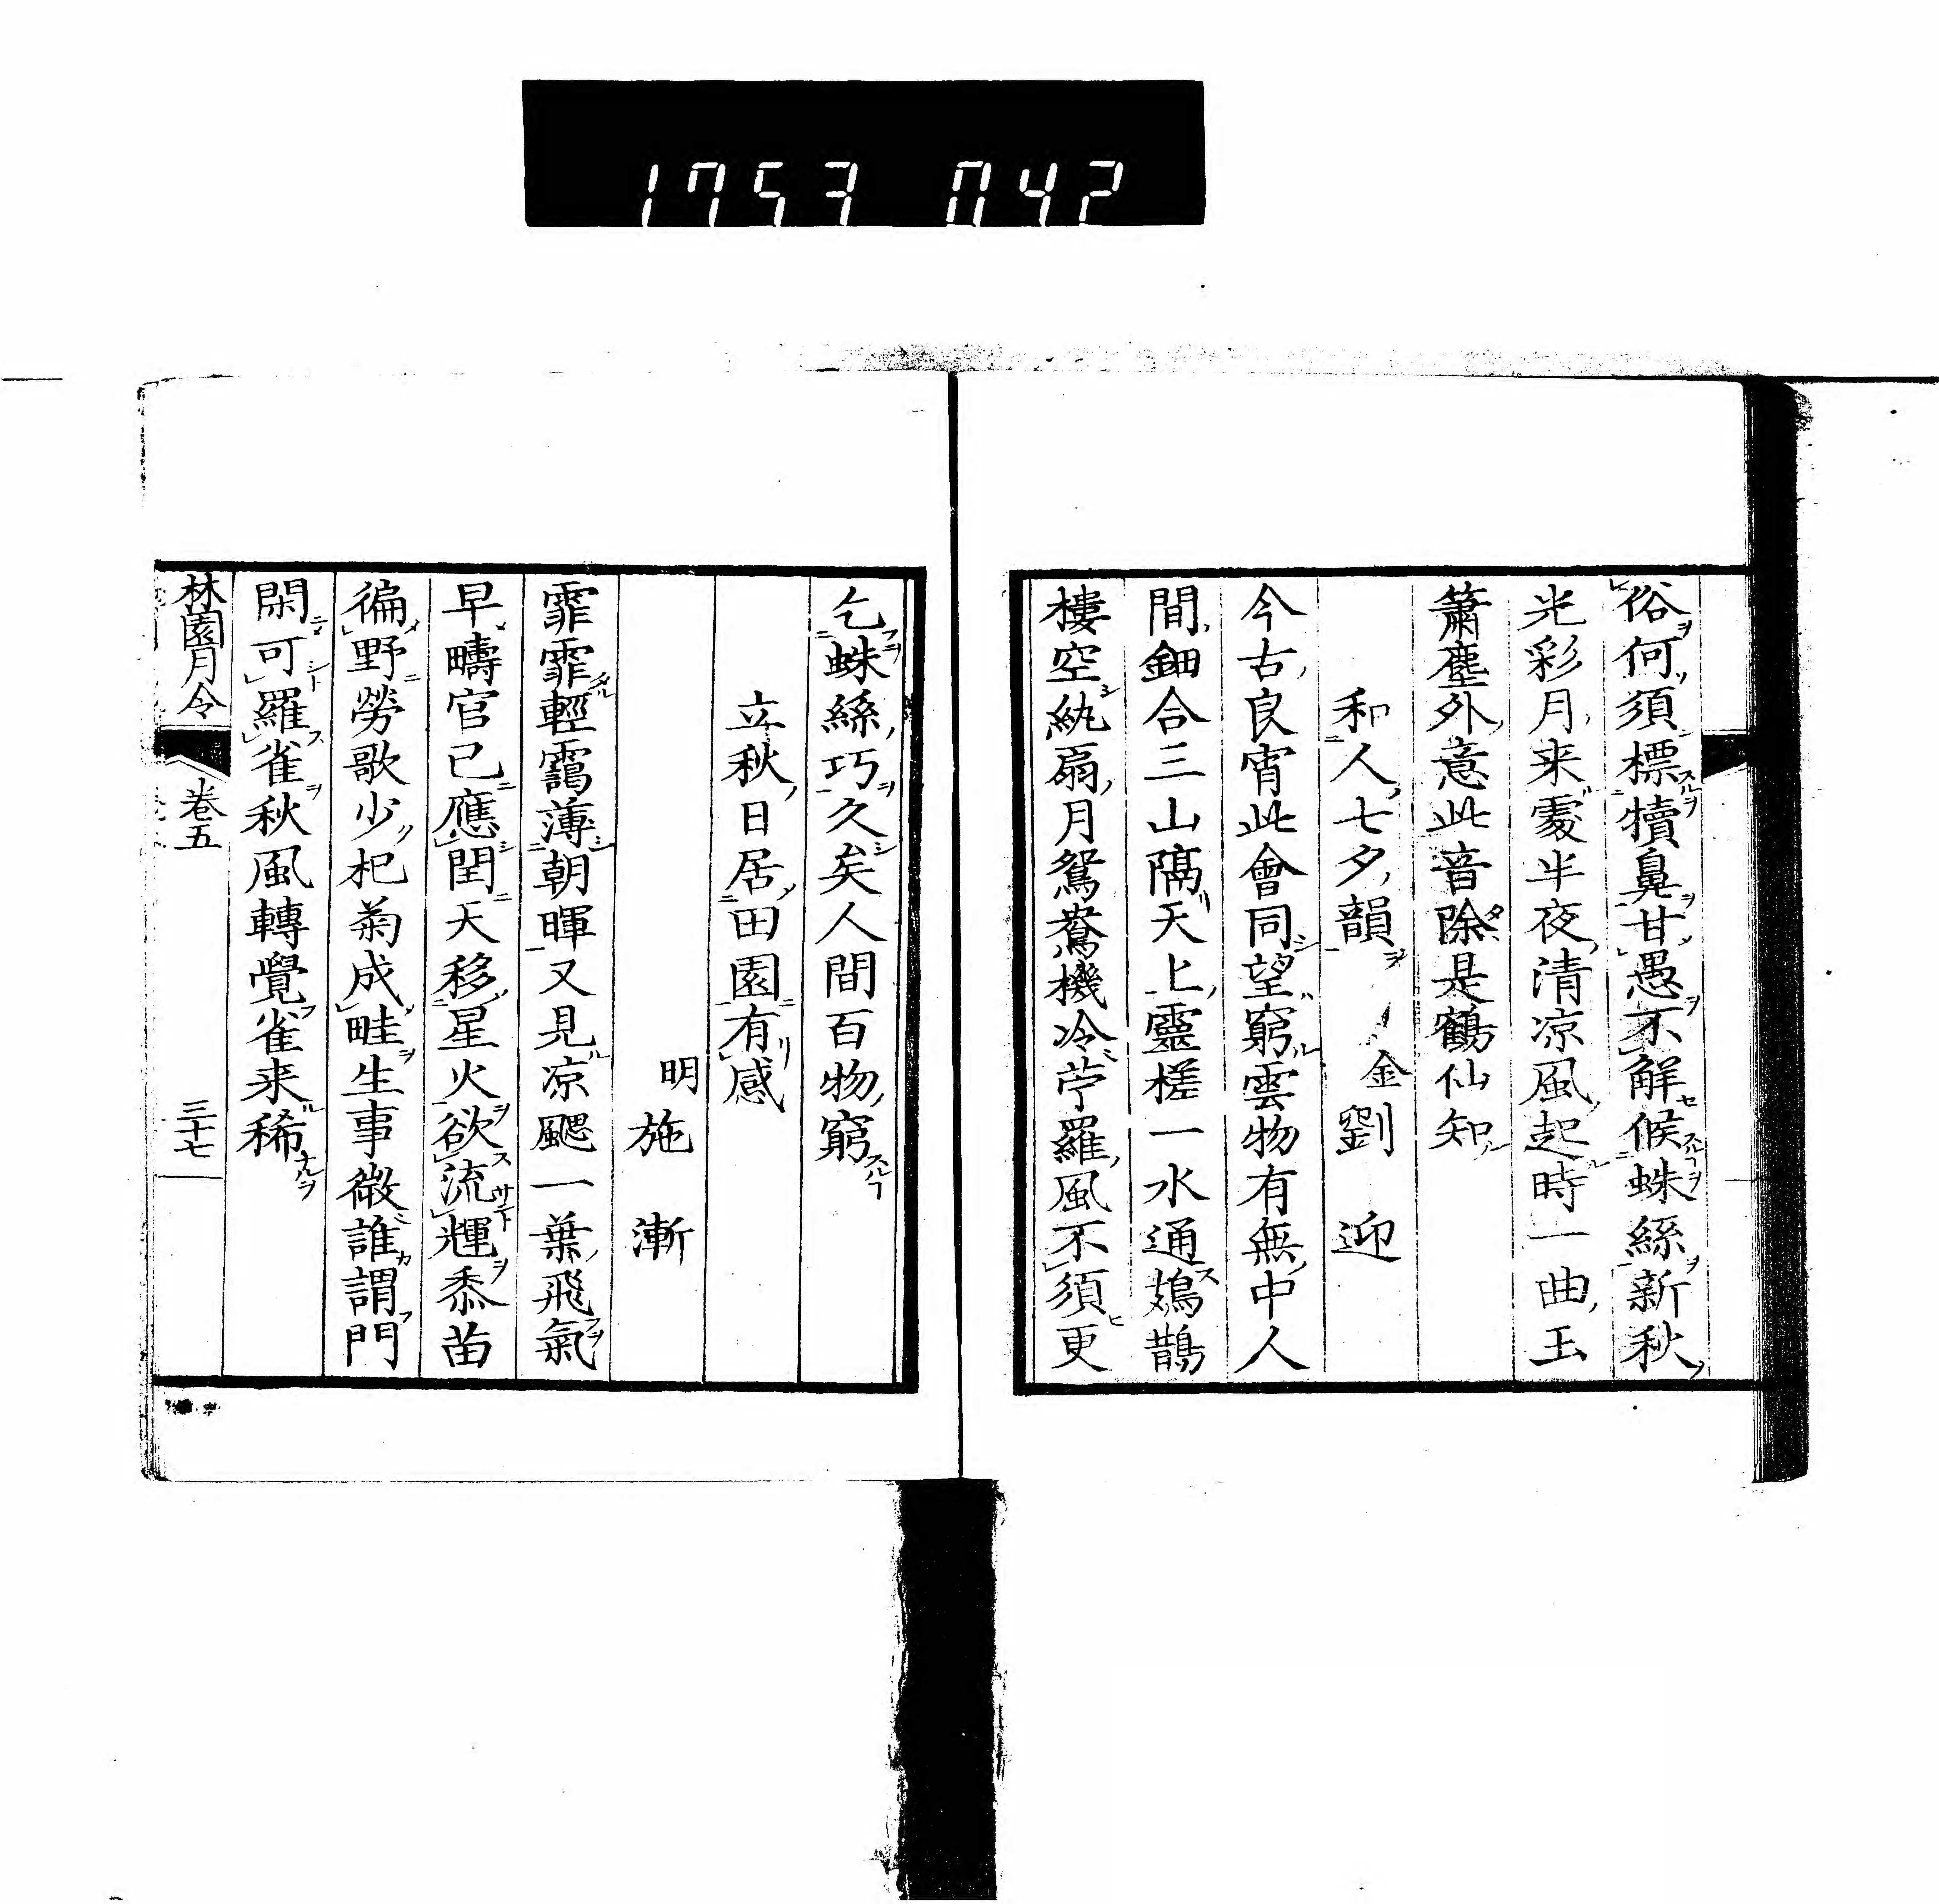 1753 042
俗何須標犢鼻甘愚不解候蛛絲新秋
光彩月来䨇半夜清凉風起時一曲玉
簫塵外意此音除是鶴仙知
和人七夕韻 金劉迎
今古良宵此會同望窮雲物有無中人
間鈿合三山隔天上靈槎一水通鳷鵲
樓空紈扇月鴛鴦機冷苧羅風不須更
乞蛛絲巧久矣人間百物窮
立秋日居田園有感
明施漸
霏霏輕靄薄朝暉又見凉颸一葉飛氣
早疇官已應閏天移星火欲流輝黍苗
徧野勞歌少杞菊成畦生事微誰謂門
閑可羅雀秋風轉覺雀来稀
林園月令 卷五 三十七